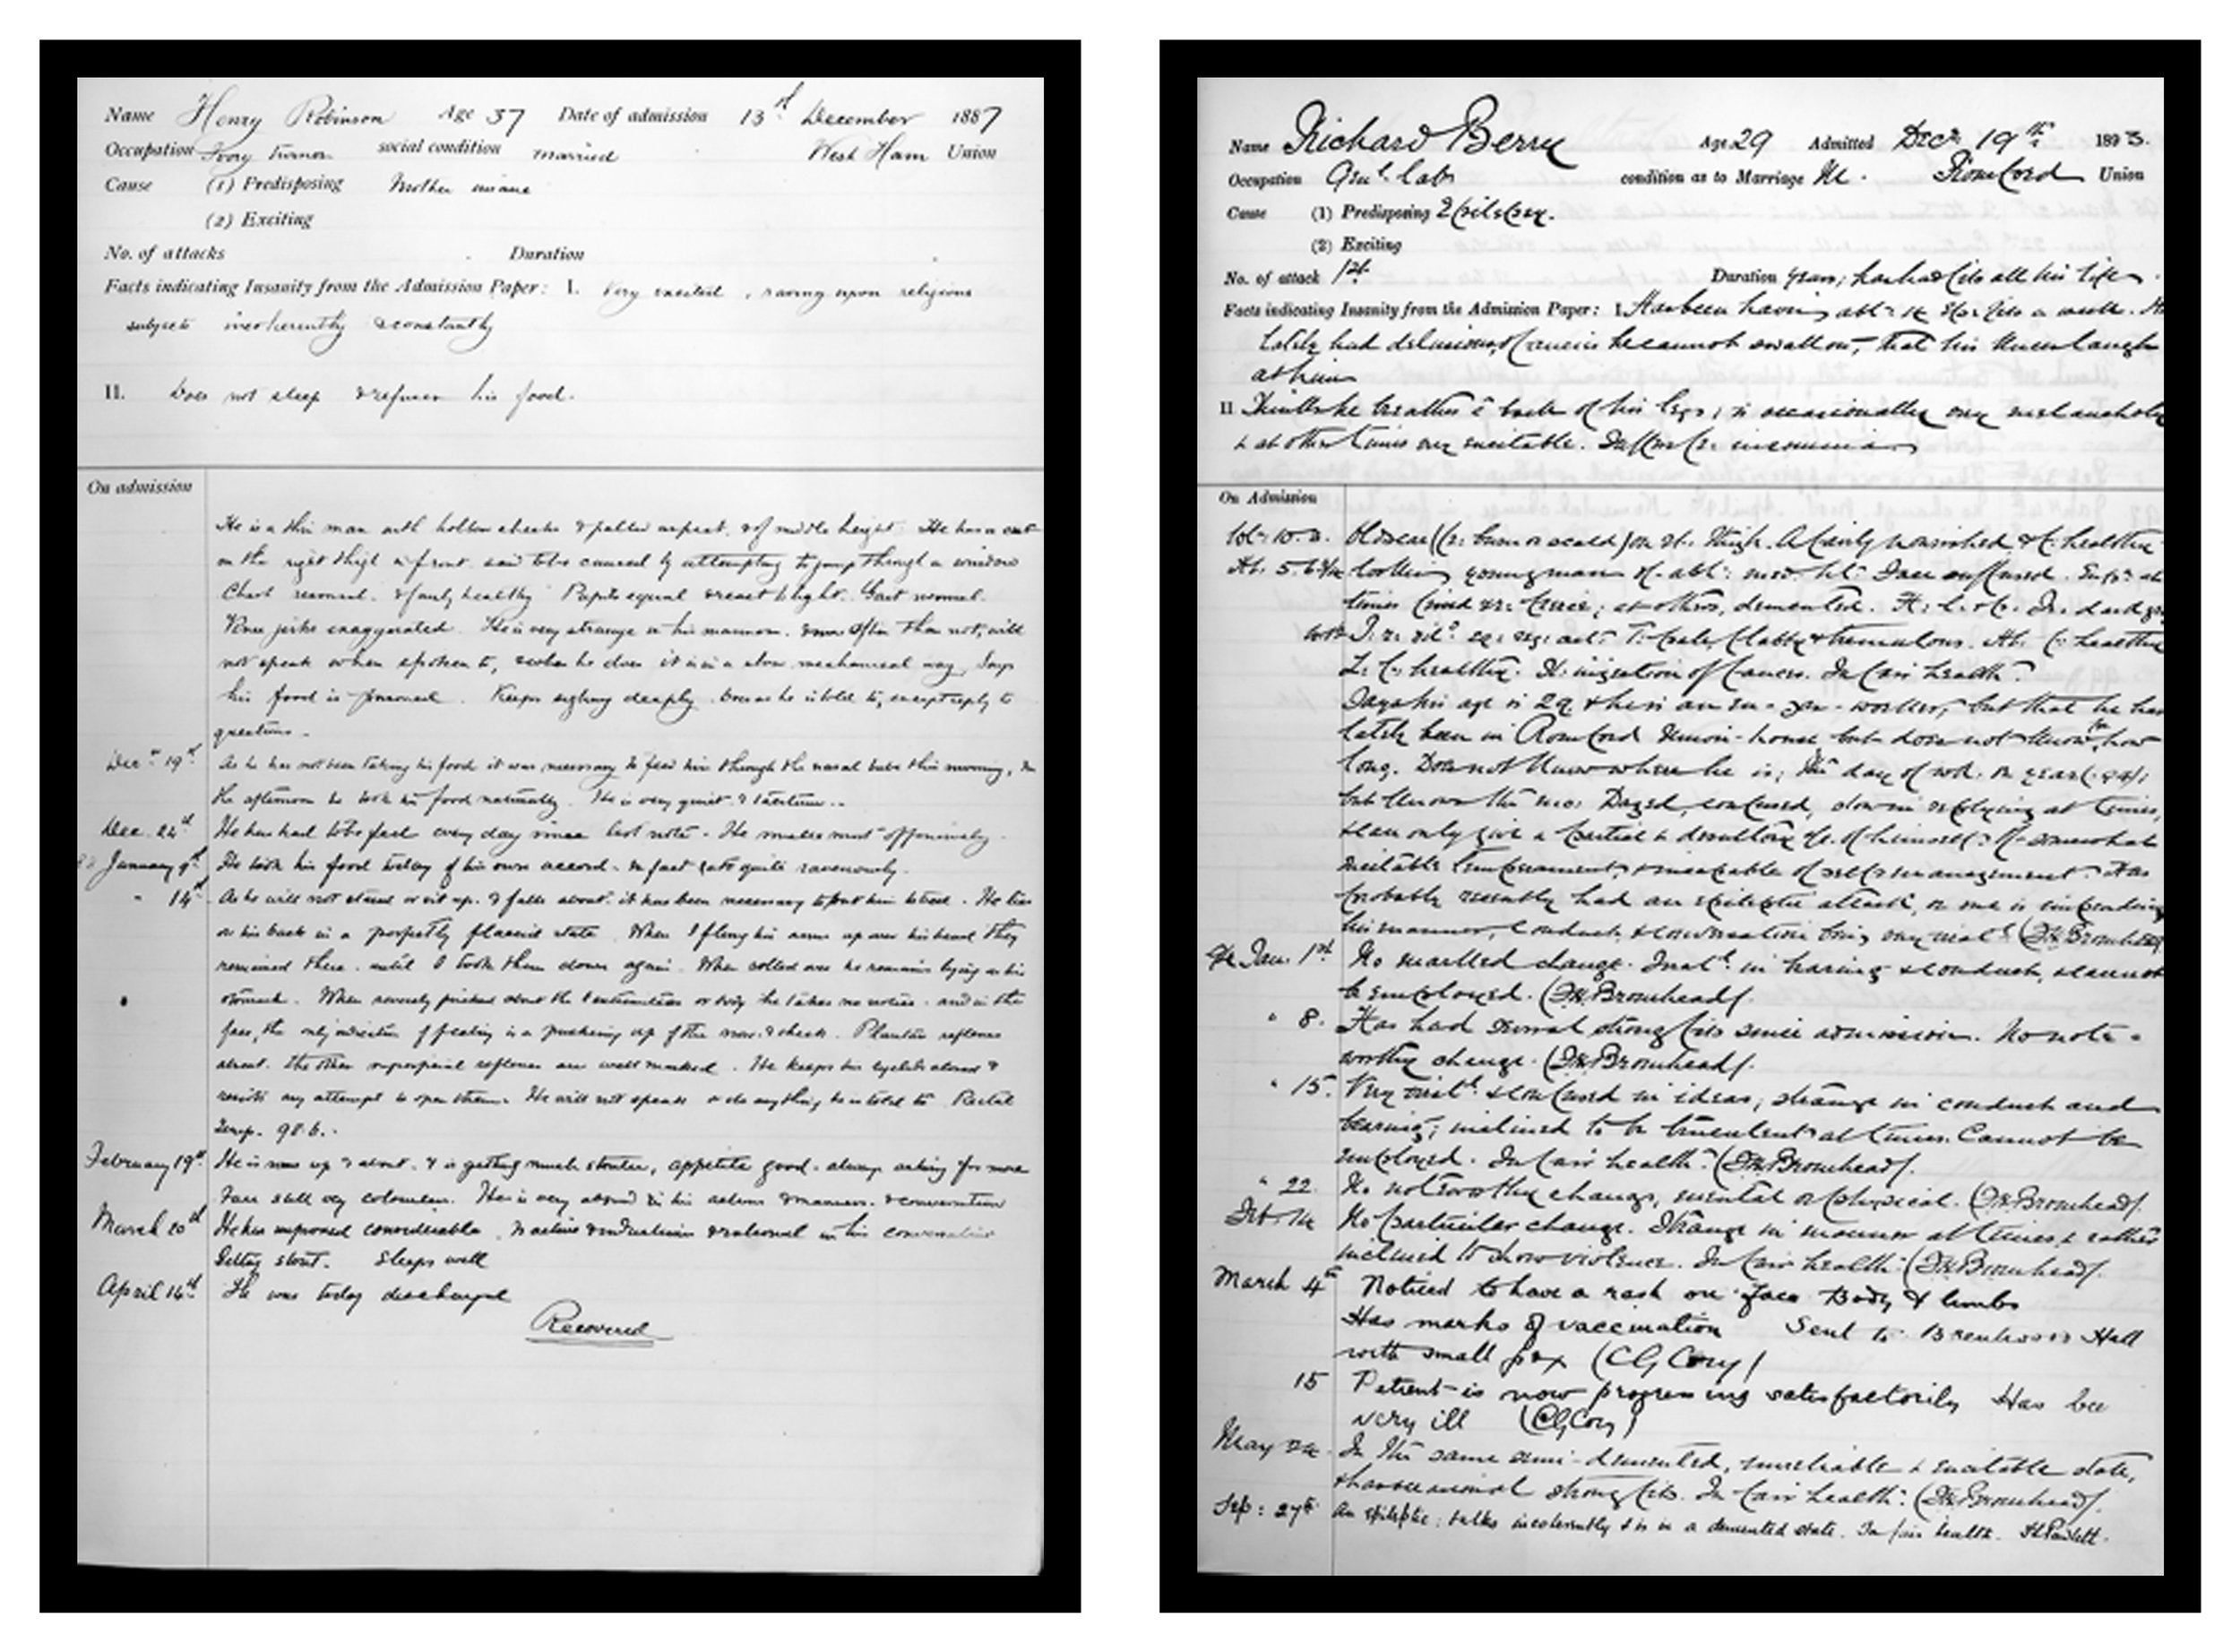 Name Henry Robinson Age 37 Date of admission 13th December 1887
Occupation Ivory turner social condition married West Ham Union
Cause (1) Predisposing Mother insane
(2) Exciting
No. of attacks Duration
Facts indicating Insanity from the Admission Paper: I. Very excited, raving upon religious
subjects incoherently & constantly
II. Does not sleep & refuses his food.
On admission
He is a thin man with hollow cheeks & pallid aspect & of middle height. He has a cut
on the right thigh in front said to be caused by attempting to jump through a window
Chest resonant & fairly healthy Pupils equal & react to light. Gait normal.
Knee jerks exaggerated. He is very strange in his manner. & more often than not, will
not speak when spoken to, & when he does it is in a slow mechanical way, Says
his food is poisoned. Keeps sighing deeply. Does as he is told to, except reply to
questions.
Dec. 19th As he has not been taking his food it was necessary to feed him through the nasal tube this morning, in
the afternoon he took his food naturally. He is very quiet & taciturn.
Dec. 24th He has had to be fed every day since last note. He smells most offensively.
January 9th He took his food today of his own accord. In fact eats quite ravenously.
" 14th As he will not stand or sit up & falls about it has been necessary to put him to bed. He lies
on his back in a perfectly placid state. When I fling his arms up over his head they
remained there until I took them down again. When rolled over he remains lying on his
stomach. When severely pinched about the extremities or body he takes no notice. and in the
face, the only indication of feeling is a puckering up of the nose & cheek. Plantar reflexes
absent. the other superficial reflexes are well marked. He keeps his eyelids closed &
resists any attempt to open them. He will not speak or do anything he is told to. Rectal
Temp. 98.6.
February 19th He is now up & about. & is getting much stouter, appetite good. always asking for more
Face still very colourless. He is very absurd in his actions & manners. & conversation
March 20th He has improved considerably. Is active & industrious & rational in his conversation
Getting stout. Sleeps well
April 14th He was today discharged
Recovered
Name Richard Berry Age 29 Admitted Decr 19th 1893.
Occupation Genl. lab. condition as to Marriage M. Romford Union
Cause (1) Predisposing Epilepsy.
(2) Exciting
No. of attack 1st. Duration years; has had fits all his life
Facts indicating Insanity from the Admission Paper: I. Has been having abt. fits a week.
Lately had delusions, fancies he cannot swallow, that his laugh
at him
II Thinks he breathes back of his legs; is occasionally very melancholy
& at other times very excitable. Suffers fr. insomnia.
On Admission
Old scar (fr. burn or scald) on rt. thigh. A fairly nourished & healthy
looking young man of abt. med. ht. Face suffused.
times demented.
healthy
L. healthy. In fair health.
Says his age is 29 & he is an worker, but that he has
lately been in Romford Union-house but does not know for how
long. Does not know where he is, the day of wk. or year
but knows the mo: Dazed, confused, slow in replying at times,
& can only give a partial & desultory a/c. of himself: of somewhat
excitable temperament, & incapable of self-management. Has
probably recently had an epileptic attack, or one is impending
his manner, conduct, & conversation being very
Jan. 1st No marked change. in bearing & conduct, & cannot
be employed. (F.H. Bromhead).
" 8. Has had several strong fits since admission. No note-
worthy change. (F.H. Bromhead).
" 15. Very & confused in ideas; strange in conduct and
bearing; inclined to be truculent at times. Cannot be
employed. In fair health. (F.H. Bromhead).
" 22. No noteworthy change, mental or physical. (F.H. Bromhead).
Feb. 14 No particular change. Strange in manner at times & rather
inclined to show violence. In fair health. (F.H. Bromhead).
March 4th Noticed to have a rash on face Body & limbs
Has marks of vaccination Sent to Brentwood Hall
with small pox (CG Cory)
15 Patient is now progressing satisfactorily Has be
very ill (CG Cory)
May 24. In the same semi-demented, unreliable & excitable state,
& has occasional strong fits. In fair health. (F.H. Bromhead).
Sep: 27th An epileptic: talks incoherently & is in a demented state. In fair health.